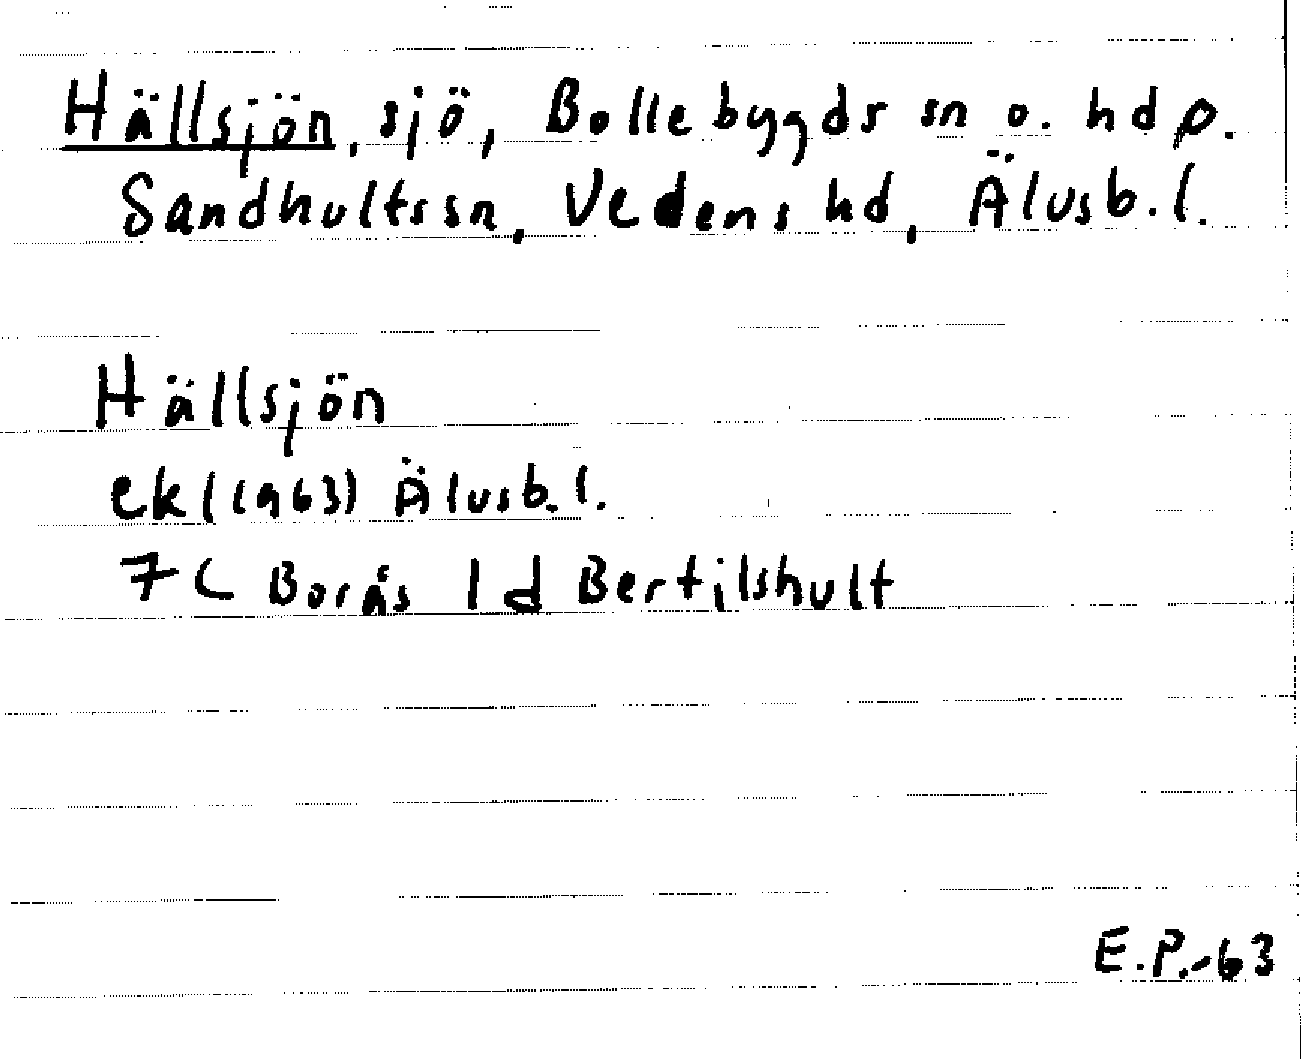 Hällsjön, sjö, Bollebygds sn o. hd p.
Sandhults sn, Vedens hd, Älvsb. l.
Hällsjön
ek (1963) Älvsb. l.
7 C Borås 1 d Bertilshult
E.P.-63